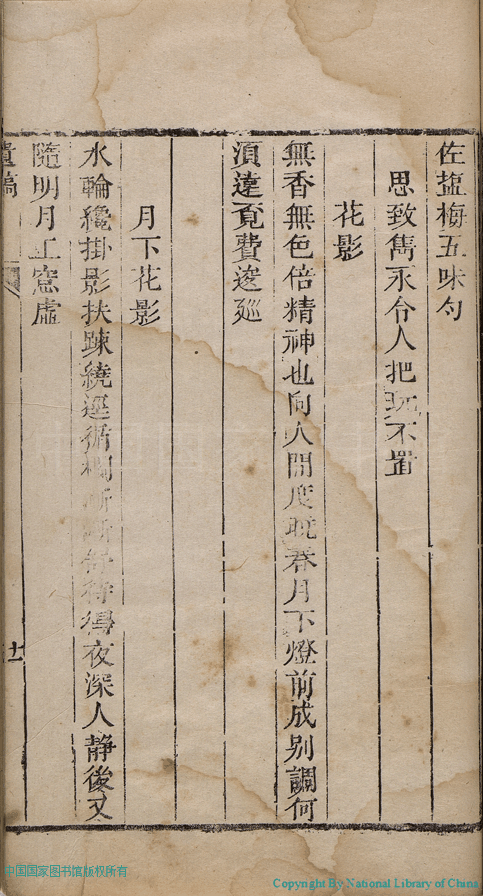 佐盐梅五味勻
思致雋永令人把玩不置
花影
無香無色倍精神也向人間度晄春月下燈前成別調何
須達覔費逡廵
月下花影
氷輪纔掛影扶踈繞遥循欄漸漸舒待得夜深人靜後又
隨明月上窻虛
遺稿
十一
中国国家图书馆版权所有
Copyright By National Library of China